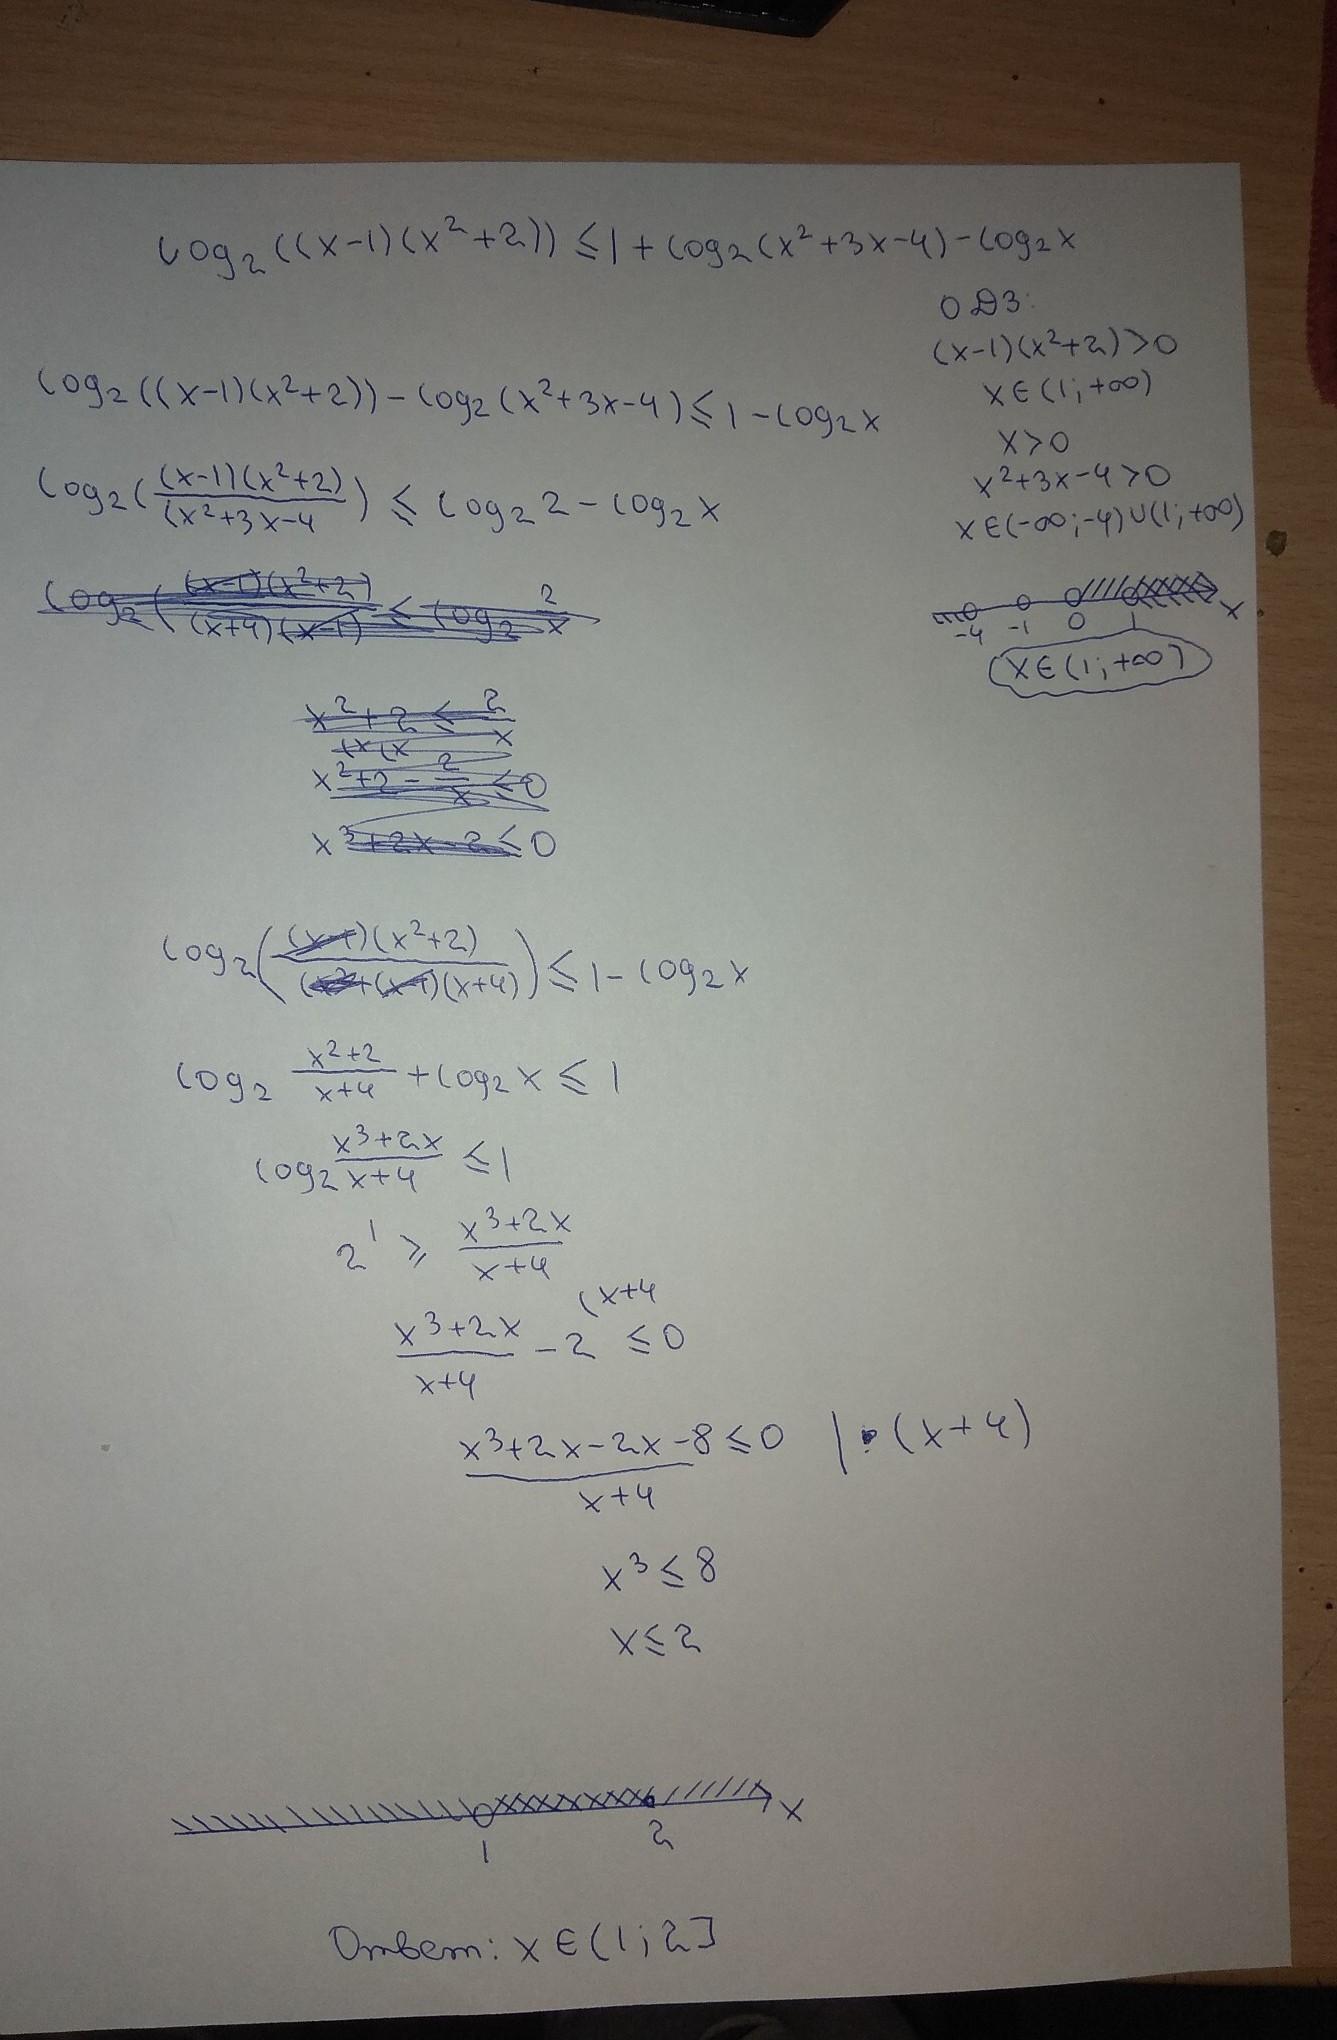 log₂((x-1)(x²+2)) ≤ 1 + log₂(x²+3x-4) - log₂x
ОДЗ:
(x-1)(x²+2)>0
x∈(1;+∞)
x>0
x²+3x-4>0
x∈(-∞;-4)∪(1;+∞)
-4 -1 0 1 x
x∈(1;+∞)
log₂((x-1)(x²+2)) - log₂(x²+3x-4) ≤ 1 - log₂x
log₂((x-1)(x²+2)/(x²+3x-4) ≤ log₂2 - log₂x
log₂((x-1)(x²+2)/(x+4)(x-1) ≤ log₂ 2/x
x²+2 ≤ 2/x
x²+2 - 2/x ≤ 0
x³+2x-2 ≤ 0
log₂((x-1)(x²+2)/(x-1)(x+4)) ≤ 1 - log₂x
log₂ x²+2/x+4 + log₂x ≤ 1
log₂ x³+2x/x+4 ≤ 1
2¹ ≥ x³+2x/x+4
(x+4
x³+2x/x+4 - 2 ≤ 0
x³+2x-2x-8/x+4 ≤ 0 | · (x+4)
x³ ≤ 8
x ≤ 2
1 2 x
Ответ: x∈(1;2]